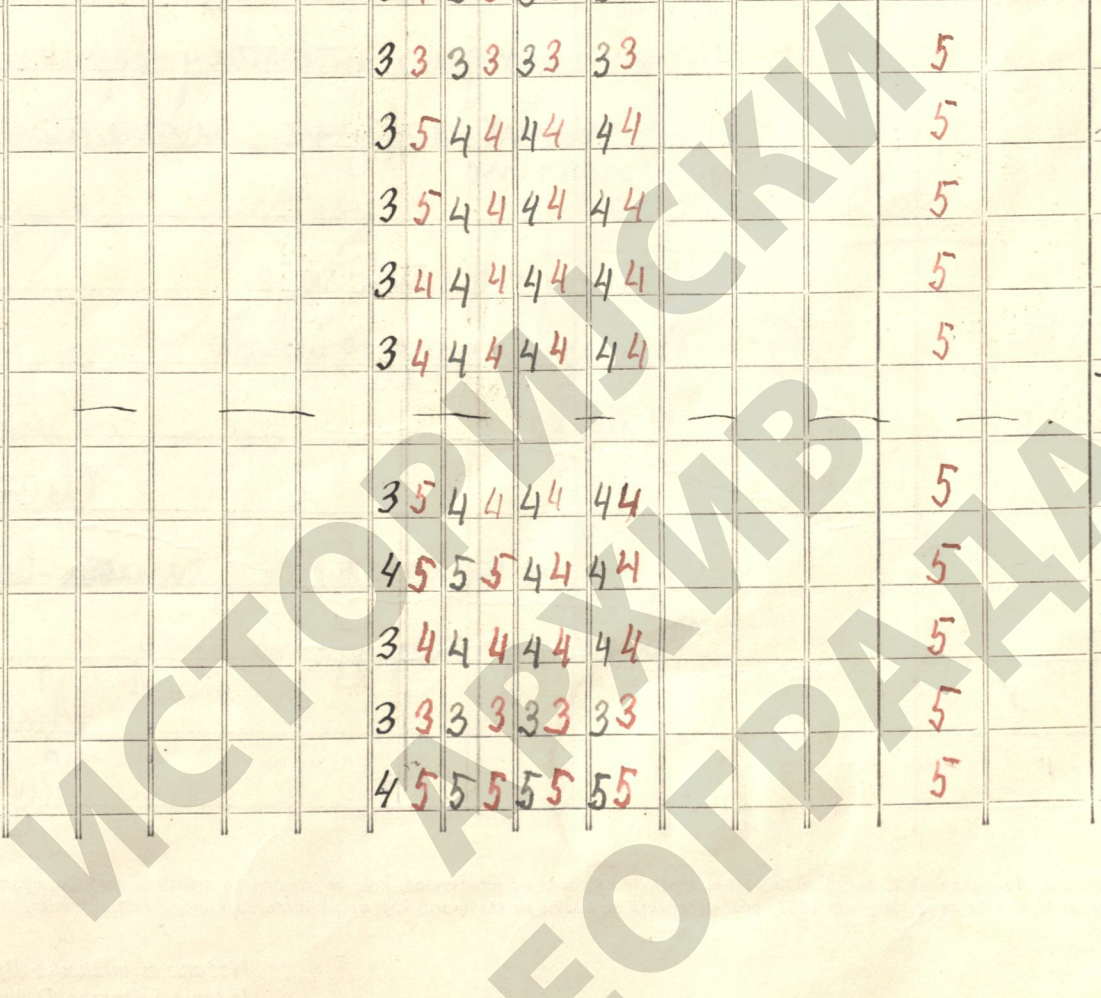 3 3 3 3 3 3 3 3 5
3 5 4 4 4 4 4 4 5
3 5 4 4 4 4 4 4 5
3 4 4 4 4 4 4 4 5
3 4 4 4 4 4 4 4 5
— — — — — — —
3 5 4 4 4 4 4 4 5
4 5 5 5 4 4 4 4 5
3 4 4 4 4 4 4 4 5
3 3 3 3 3 3 3 3 5
4 5 5 5 5 5 5 5 5
ИСТОРИЈСКИ
АРХИВ
ЕОГРАДА